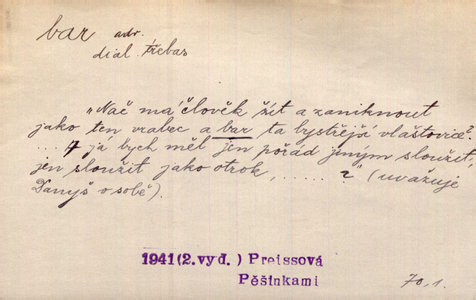 bar adv.
dial. třebas
"Nač má člověk žít a zaniknout
jako ten vrabec a bar ta bystřejší vlaštovice?
.... A já bych měl jen pořád jiným sloužit,
jen sloužit jako otrok, ......?" (uvažuje
Danyš o sobě).
1941(2.vyd.) Preissová
Pěšinkami
70,1.